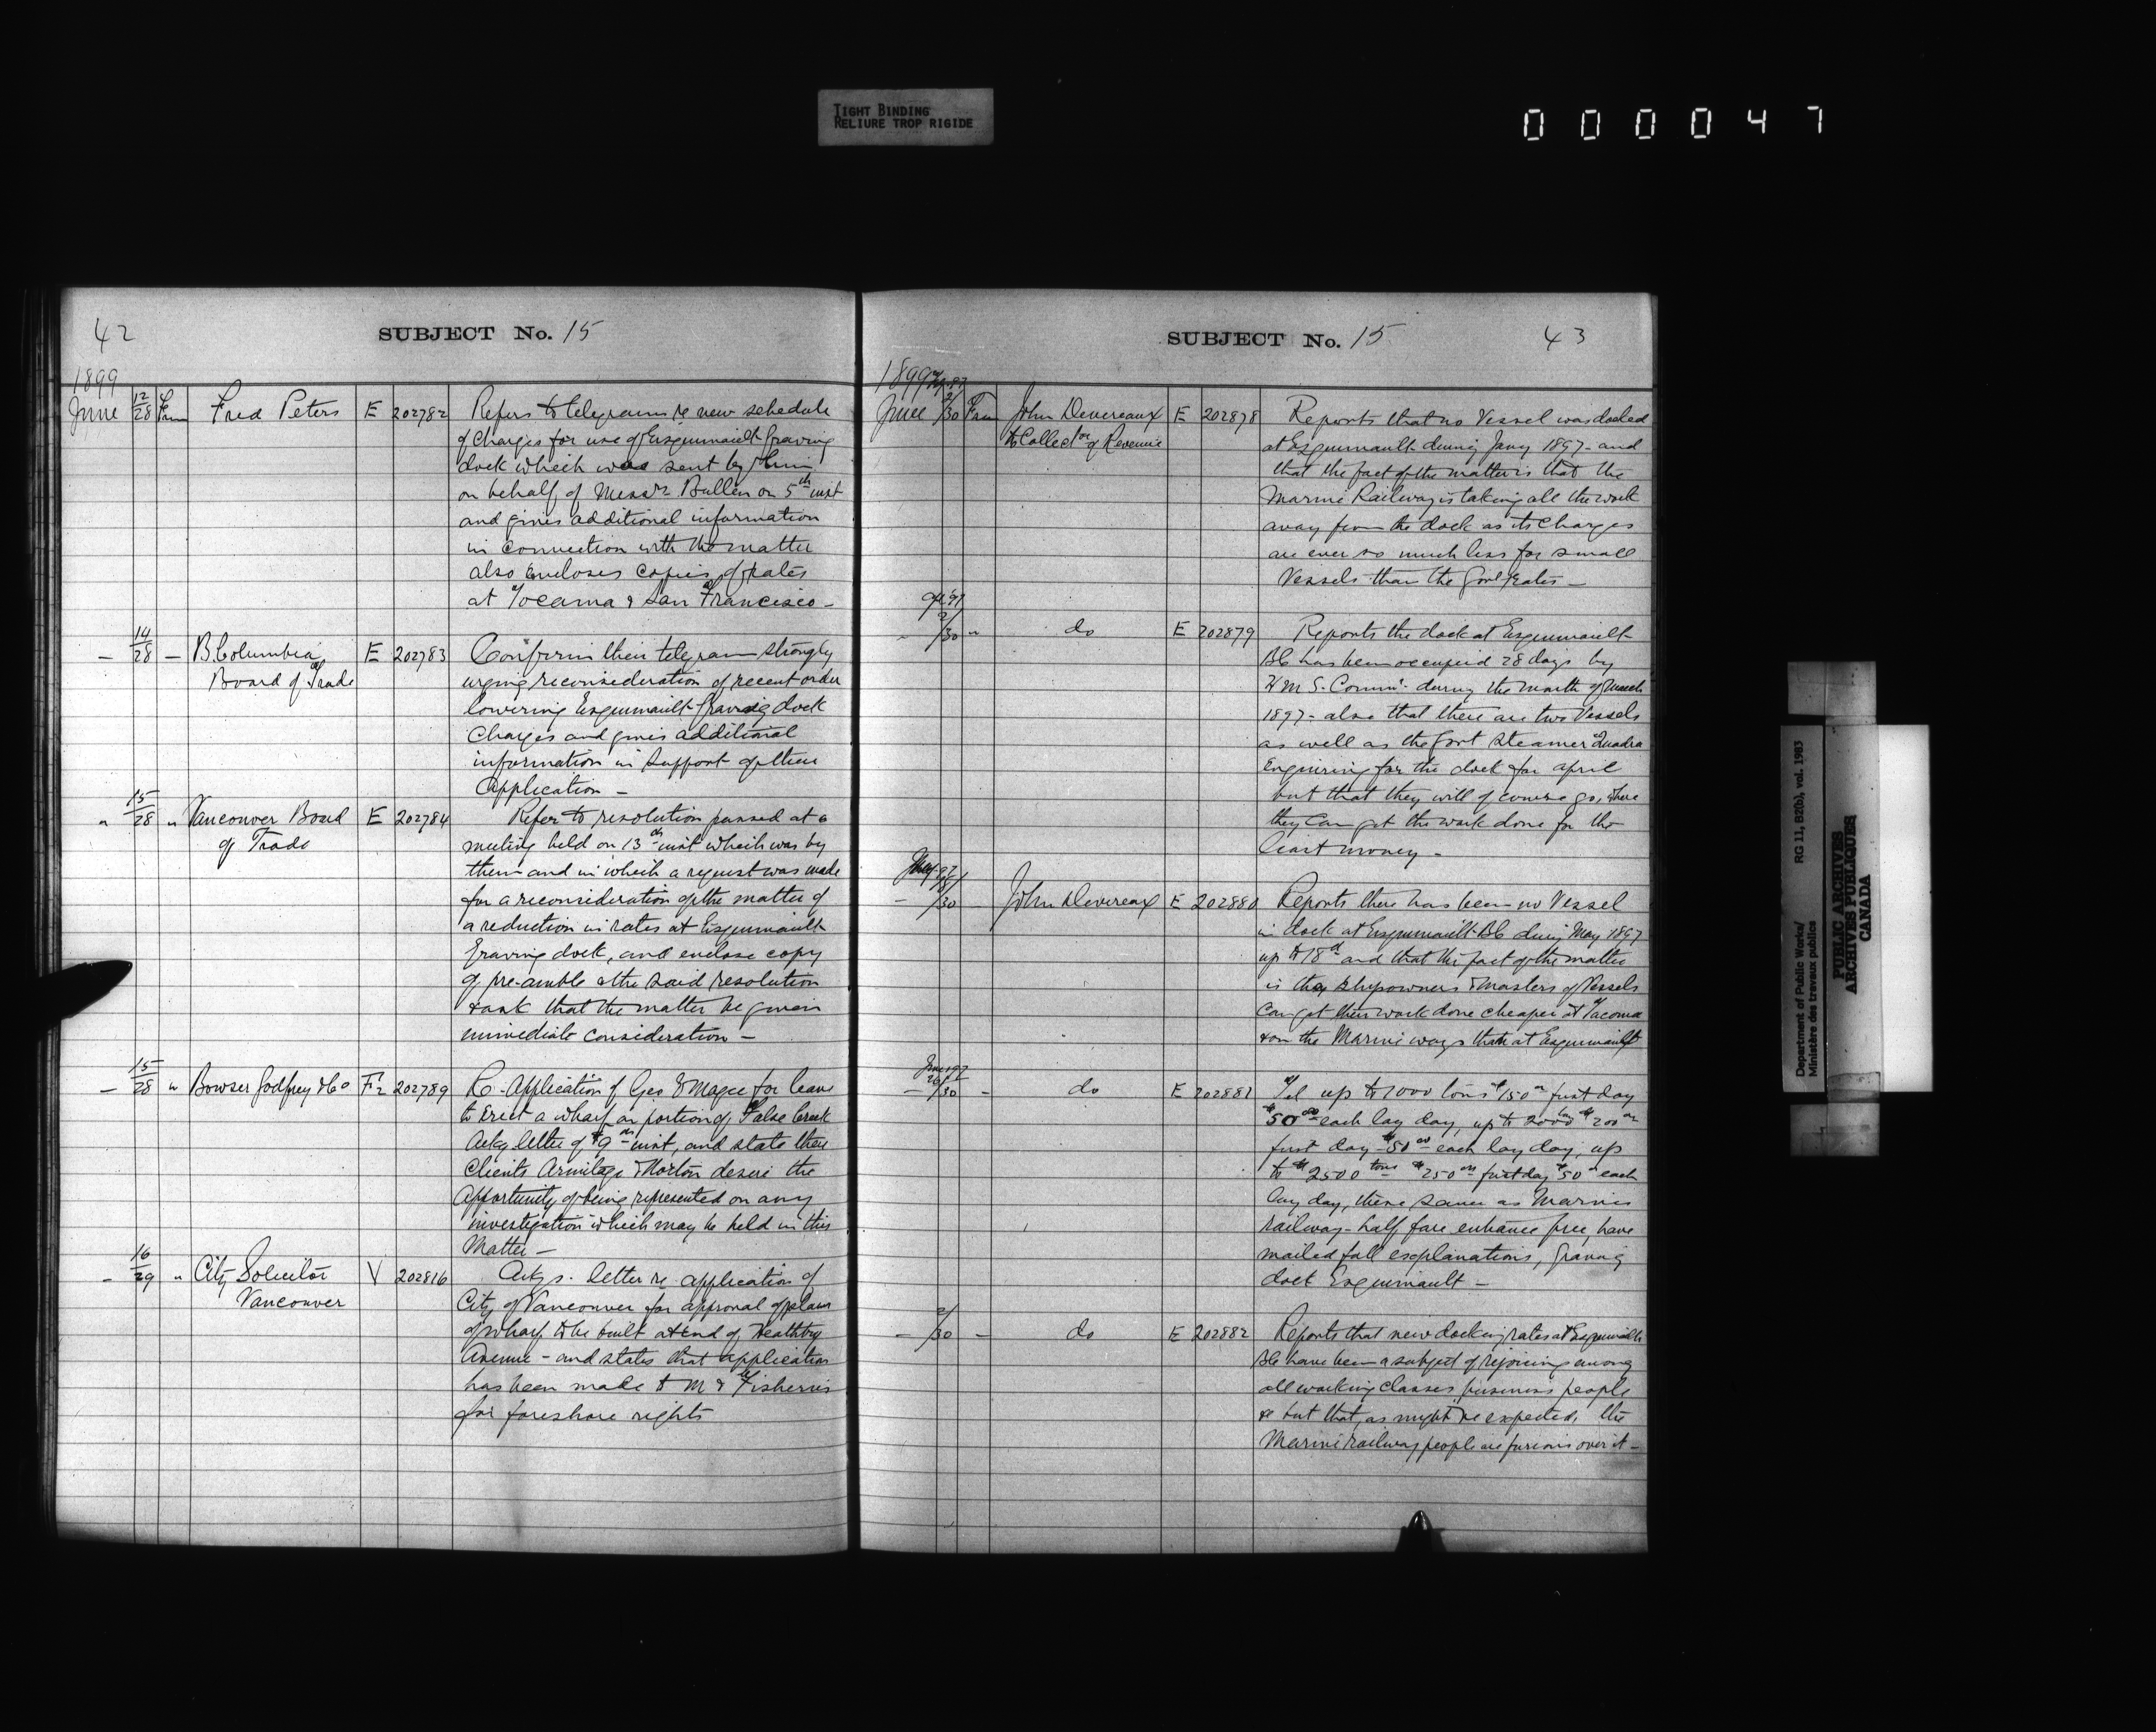 TIGHT BINDING
RELIURE TROP RIGIDE
000047
42
SUBJECT No. 15
1899
June 12/28 Fred Peters E 202782 Refers to telegrams re new schedule
of charges for use of Esquimault Graving
dock which was sent by him
on behalf of Messrs Bullen on 5th inst
and gives additional information
in connection with the matter
also encloses copies of rates
at Tocama & San Francisco -
- 14/28 - B. Columbia E 202783 Confirm their telegram strongly
Board of Trade urging reconsideration of recent order
lowering Esquimault Graving dock
charges and gives additional
information in support of their
Application -
" 15/28 " Vancouver Board E 202784 Refer to resolution passed at a
of Trade meeting held on 13th inst which was by
them and in which a request was made
for a reconsideration of the matter of
a reduction in rates at Esquimault
Graving dock, and enclose copy
of pre-amble & the said resolution
& ask that the matter be given
immediate consideration -
- 15/28 " Bowser Godfrey & Co F2 202789 Re Application of Geo E Magee for leave
to Erect a wharf on portion of False Creek
Ackg letter of 9th inst, and state their
Clients Armitage & Morton desire the
opportunity of being represented on any
investigation which may be held in this
Matter -
- 16/29 " City Solicitor V 202816 Ackgs. letter re application of
Vancouver City of Vancouver for approval of plans
of wharf to be built at end of Heatley
Avenue - and states that application
has been made to M & Fisheries
for foreshore rights
SUBJECT No. 15
43
1899
June 2/30 John Devereaux E 202878 Reports that no Vessel was docked
to Collector of Revenue at Esquimault during Jany 1897 - and
that the fact of the matter is that the
Marine Railway is taking all the work
away from the dock as its charges
are ever so much less for small
Vessels than the Govt rates -
2/30 " do E 202879 Reports the dock at Esquimault
BC has been occupied 28 days by
H M S. during the month of March
1897 - also that there are two Vessels
as well as the Govt Steamer Quadra
Enquiring for the dock for April
but that they will of course go, where
they can get the work done for the
least money -
May 97
- 18/30 John Devereax E 202880 Reports there has been no Vessel
in dock at Esquimault BC during May 1897
up to 18th and that the fact of the matter
is that shipowners & masters of Vessels
can get their work done cheaper at Tacoma
& on the Marine ways than at Esquimault
June 97
- 26/30 - do E 202881 Tel up to 1000 tons $150 00 first day
$50 00 each lay day, up to 2000 tons $200 00
first day $50 00 each lay day, up
to 2500 tons $250 00 first day $50 each
lay day, these same as Marine
railway - half fare entrance free, have
mailed full explanations, Graving
dock Esquimault -
- 2/30 - do E 202882 Reports that new docking rates at Esquimault
BC have been a subject of rejoicing among
all working classes business people
&c but that, as might be expected, the
Marine railway people are furious over it -
Department of Public Works/ RG 11, B2(b), vol. 1983
Ministère des travaux publics
PUBLIC ARCHIVES
ARCHIVES PUBLIQUES
CANADA